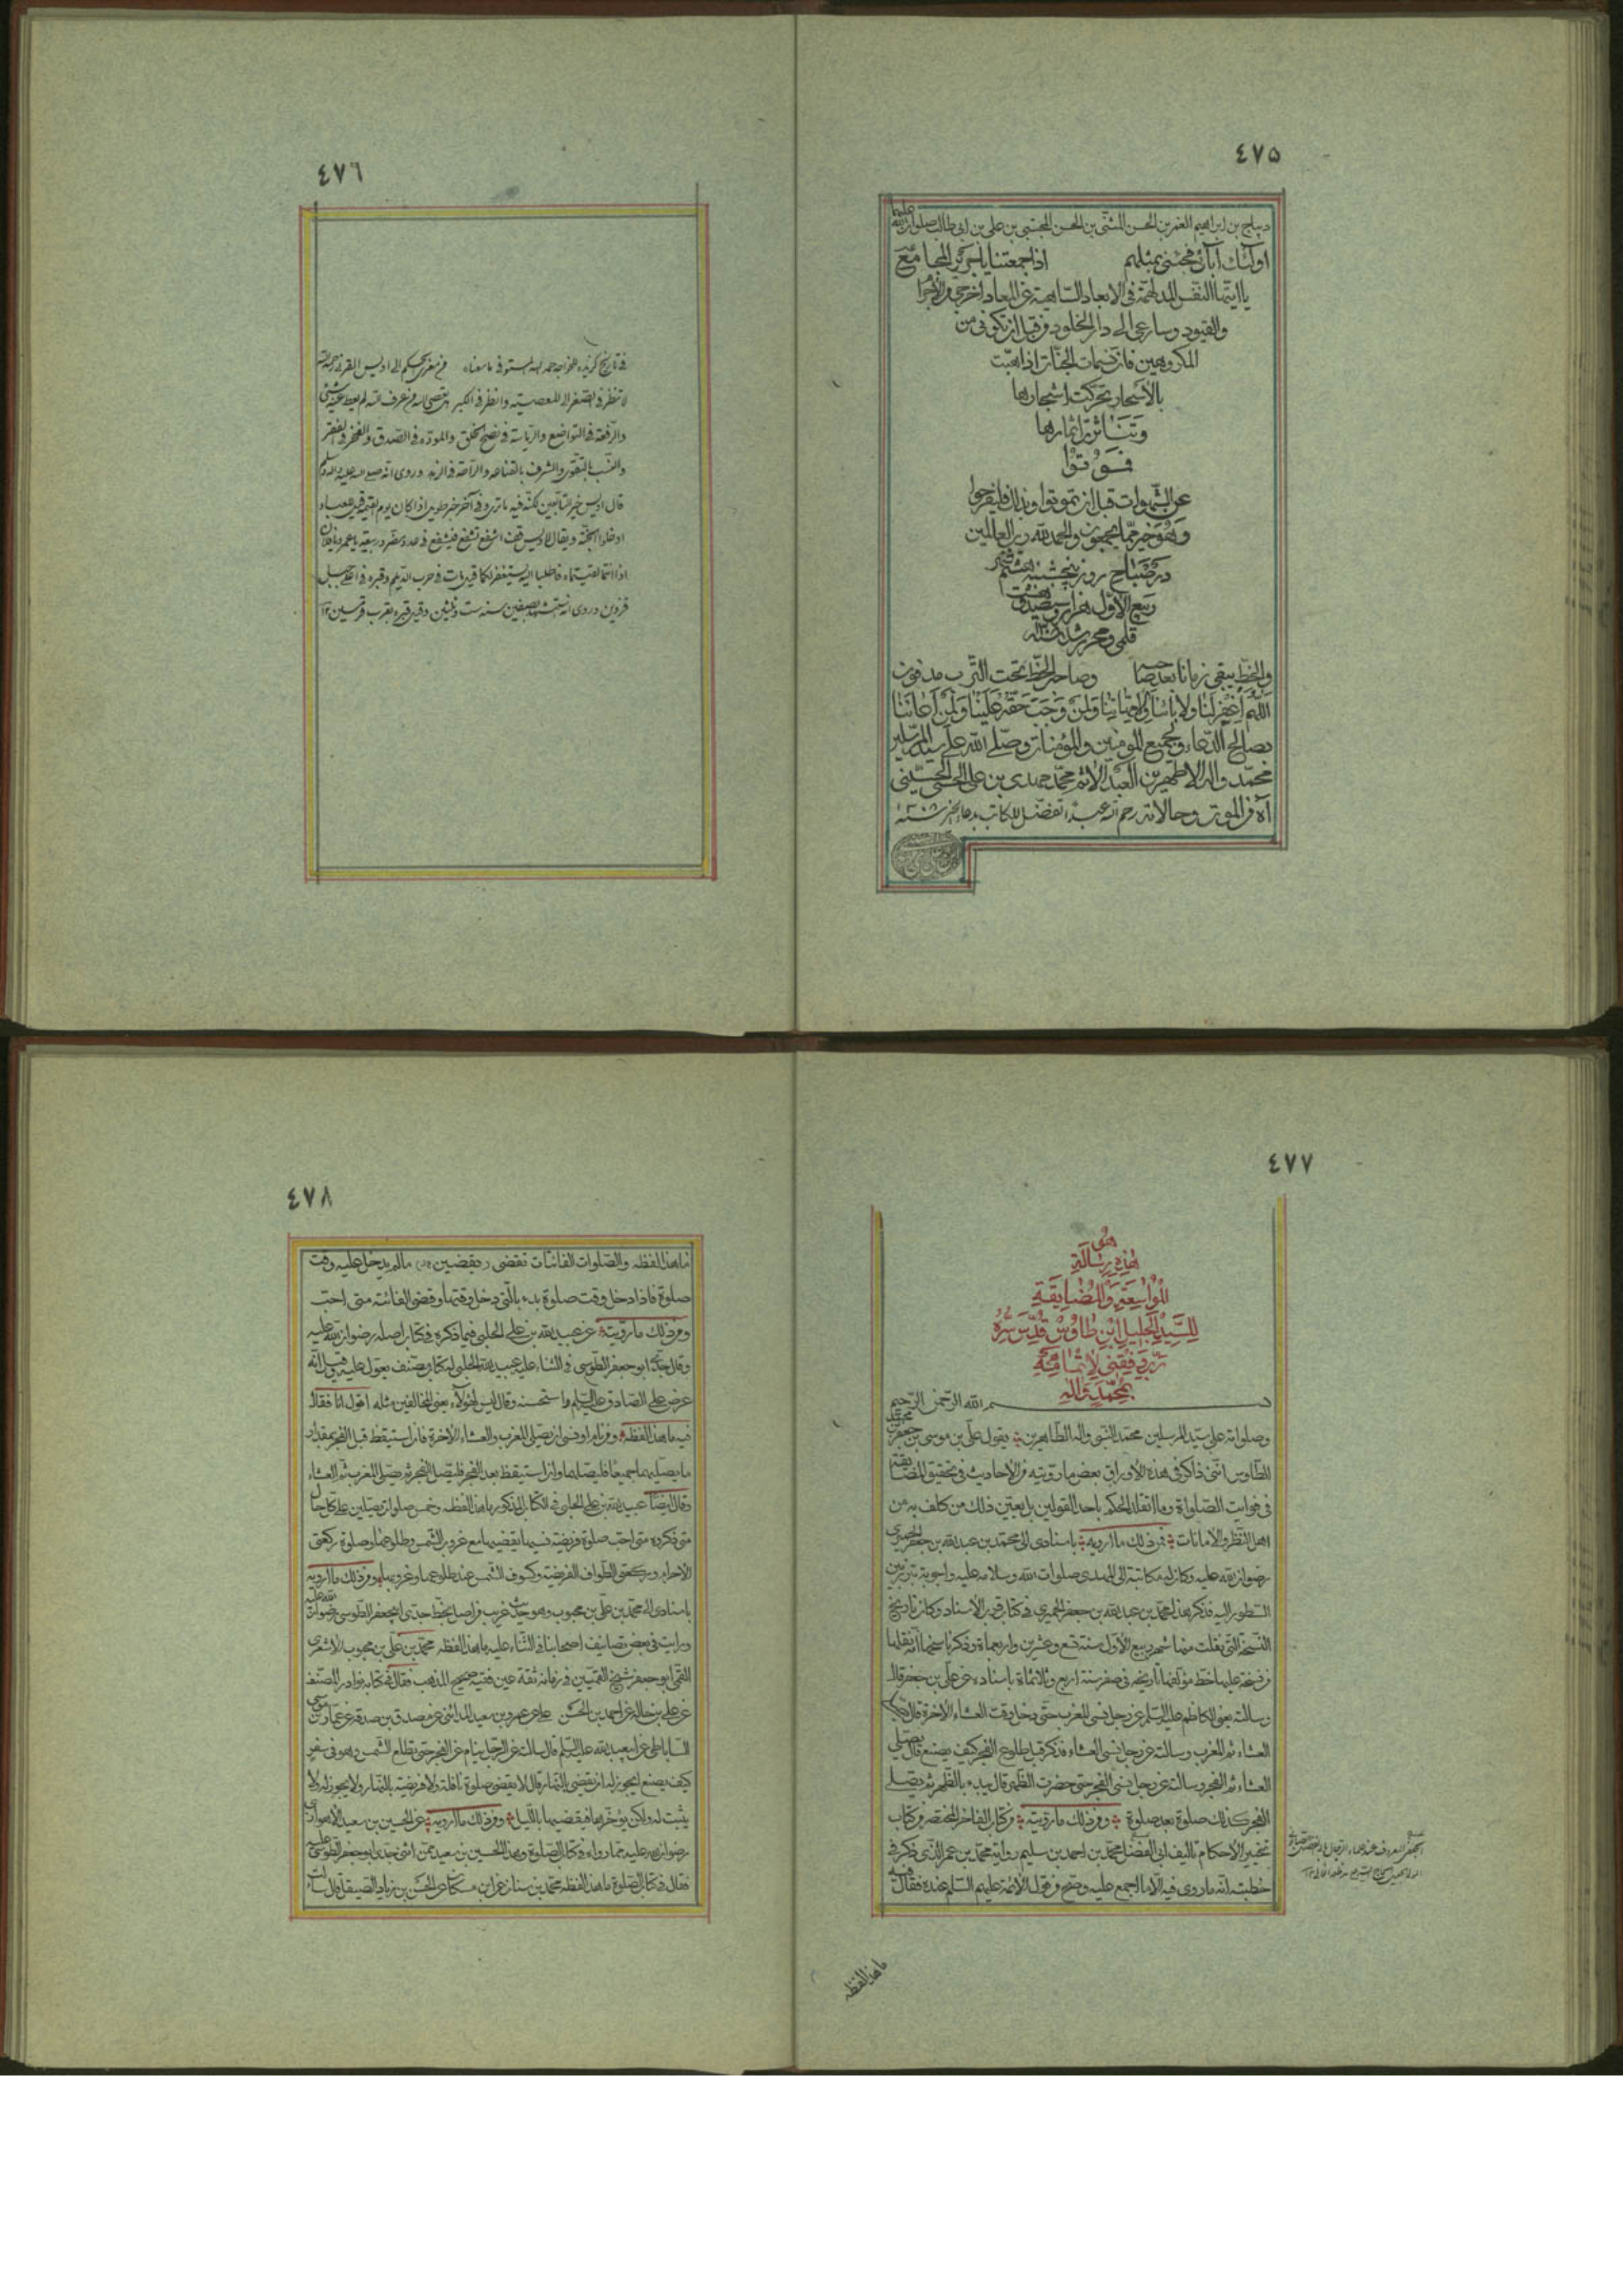 ٤٧٥
ديباج بن ابراهيم الغمر بن الحسن المثنى بن الحسن المجتبى بن على بن ابى طالب صلوات الله عليهما
اولئك آبائى فجئنى بمثلهم اذا جمعتنا يا جرير المجامع
يا ايتها النفس المدلهمة فى الابعاد الساهية عن المعاد اخرجى من
والقيود وسارعى الى دار الخلود من قبل ان تكونى من
المكروهين فان نسمات الجنات اذا هبت
بالاسحار تحركت اشجارها
وتناثرت اثمارها
فموتوا
عن الشهوات قبل ان تموتوا وبذلك فليفرحوا
وهو خير مما يجمعون والحمد لله رب العالمين
در صباح روز پنجشنبه هشتم شهر
ربيع الاول هزار و سيصد و
قلمى و محرر شد
والخط يبقى زمانا بعد صاحبه وصاحب الخط تحت الترب مدفون
اللهم اغفر لنا ولابائنا وامهاتنا ولمن وجب حقه علينا ولمن اعاننا
بصالح الدعاء ولجميع المومنين والمؤمنات وصلى الله على سيد المرسلين
محمد واله الاطهرين العبد الاثم محمد مهدى بن على الحسنى الحسينى
آه من الموت وحالاته رحم الله عبدا تفضل للكاتب بدعاء الخير
٤٧٦
فى تاريخ گزيده للخواجه حمد الله المستوفى ما معناه
لا تنظر فى الصغر الى المعصية وانظر فى الكبر من عرف الله لم
والرفعة فى التواضع والرياسة فى نصح الخلق والمودة فى الصدق والفخر فى الفقر
والنسب بالتقوى والشرف بالقناعة والراحة فى الزهد وروى انه صلى الله عليه واله وسلم
قال اويس خير التابعين وفى آخر خبر طويل اذا كان يوم القيمة قيل للعباد
ادخلوا الجنة ويقال لاويس قف اشفع تشفع فيشفع فى عدد مضر وربيعة يا عمر ويا
اذا انتما لقيتماه فاطلبا اليه يستغفر لكما قيل مات فى حرب الديلم وقبره فى اعلى جبل
قزوين وروى انه استشهد بصفين سنة ست وثلثين وقيل قبره بقرب
٤٧٧
هو
هذه رسالة
المواسعة والمضايقة
للسيد الجليل ابن طاوس قدس سره
رب وفقنى لاتمامه
بمحمد واله
بسم الله الرحمن الرحيم
وصلواته على سيد المرسلين محمد النبى واله الطاهرين يقول على بن موسى بن جعفر بن محمد
الطاوس اننى ذاكر فى هذه الاوراق بعض ما رويته من الاحاديث فى تحقيق المضايقة
فى فوايت الصلواة وما اتقلد الحكم باحد القولين بل يعتبر ذلك من كلف به من
اهل النظر والامانات فمن ذلك ما ارويه باسنادى الى محمد بن عبد الله بن جعفر الحميرى
رضوان الله عليه وكان له مكاتبة الى المهدى صلوات الله وسلامه عليه واجوبة بين
السطور اليه فذكر هذا محمد بن عبد الله بن جعفر الحميرى فى كتاب قرب الاسناد وكان تاريخ
النسخة التى نقلت منها شهر ربيع الاول سنة تسع وعشرين واربعماة وذكر ناسخها انه نقلها
من نسخة عليها خط مؤلفها تاريخه فى صفر سنة اربع وثلاثمائة باسناده عن على بن جعفر قال
وسالته يعنى الكاظم عليه السلم عن رجل نسى المغرب حتى دخل وقت العشاء الاخرة قال يصلى
العشاء ثم المغرب وسالته عن رجل نسى العشاء فذكر قبل طلوع الفجر كيف يصنع قال يصلى
العشاء ثم الفجر وسالته عن رجل نسى الفجر حتى حضرت الظهر قال يبدء بالظهر ثم يصلى
الفجر كذلك صلوة بعد صلوة ومن ذلك ما رويته من كتاب الفاخر المختصر من كتاب
تخيير الاحكام تاليف ابى الفضل محمد بن احمد بن سليم رواية محمد بن عمر الذى ذكر فى
خطبته انه ما روى فيه الا ما اجمع عليه وصح من قول الائمة عليهم السلم عنده فقال فيه
ما هذا لفظه
٤٧٨
ما هذا لفظه والصلوات الفائتات تقضى ما لم يدخل عليه وقت
صلوة فاذا دخل وقت صلوة بدء بالتى دخل وقتها وقضى الفائتة متى احب
ومن ذلك ما رويته عن عبيد الله بن على الحلبى فيما ذكره فى كتاب اصله رضوان الله عليه
وقال جدى ابو جعفر الطوسى فى الثناء عليه عبيد الله الحلبى له كتاب مصنف يعول عليه وقيل انه
عرض على الصادق عليه السلم ولما استحسنه وقال ليس لهؤلاء يعنى المخالفين مثله اقول انا فقال
فيه ما هذا لفظه ومن نام او نسى ان يصلى المغرب والعشاء الاخرة فان استيقظ قبل الفجر بمقدار
ما يصليهما جميعا فليصلهما وان استيقظ بعد الفجر فليصل الفجر ثم يصلى المغرب ثم العشاء
وقال ايضا عبيد الله بن على الحلبى فى الكتاب المذكور ما هذا لفظه وخمس صلوات يصلين على كل حال
متى ذكره متى احب صلوة فريضة نسيها يقضيها مع غروب الشمس وطلوعها وصلوة ركعتى
الاحرام وركعتى الطواف الفريضة وكسوف الشمس عند طلوعها وغروبها ومن ذلك ما ارويه
باسنادى الى محمد بن على بن محبوب وهو حديث غريب من اصل بخط جدى ابى جعفر الطوسى رضوان الله عليه
ورايت فى بعض تصانيف اصحابنا فى الثناء عليه ما هذا لفظه محمد بن على بن محبوب الاشعرى
القمى ابو جعفر شيخ القميين فى زمانه ثقة عين فقيه صحيح المذهب فقال فى كتابه نوادر المصنف
عن على بن خالد عن احمد بن الحسن على عن عمرو بن سعيد المدائنى عن مصدق بن صدقة عن عمار بن موسى
الساباطى عن ابى عبد الله عليه السلم قال سالته عن الرجل ينام عن الفجر حتى تطلع الشمس وهو فى سفر
كيف يصنع ايجوز له ان يقضى بالنهار قال لا يقضى صلوة نافلة ولا فريضة بالنهار ولا يجوز له ولا
يثبت له ولكن يؤخرها فيقضيها بالليل ومن ذلك ما ارويه عن الحسين بن سعيد الاهوازى
رضوان الله عليه مما رواه فى كتاب الصلوة وهذا الحسين بن سعيد ممن اثنى جدى ابو جعفر الطوسى عليه
فقال فى كتاب الصلوة ما هذا لفظه محمد بن سنان عن ابن مسكان عن الحسن بن زياد الصيقل قال سالت